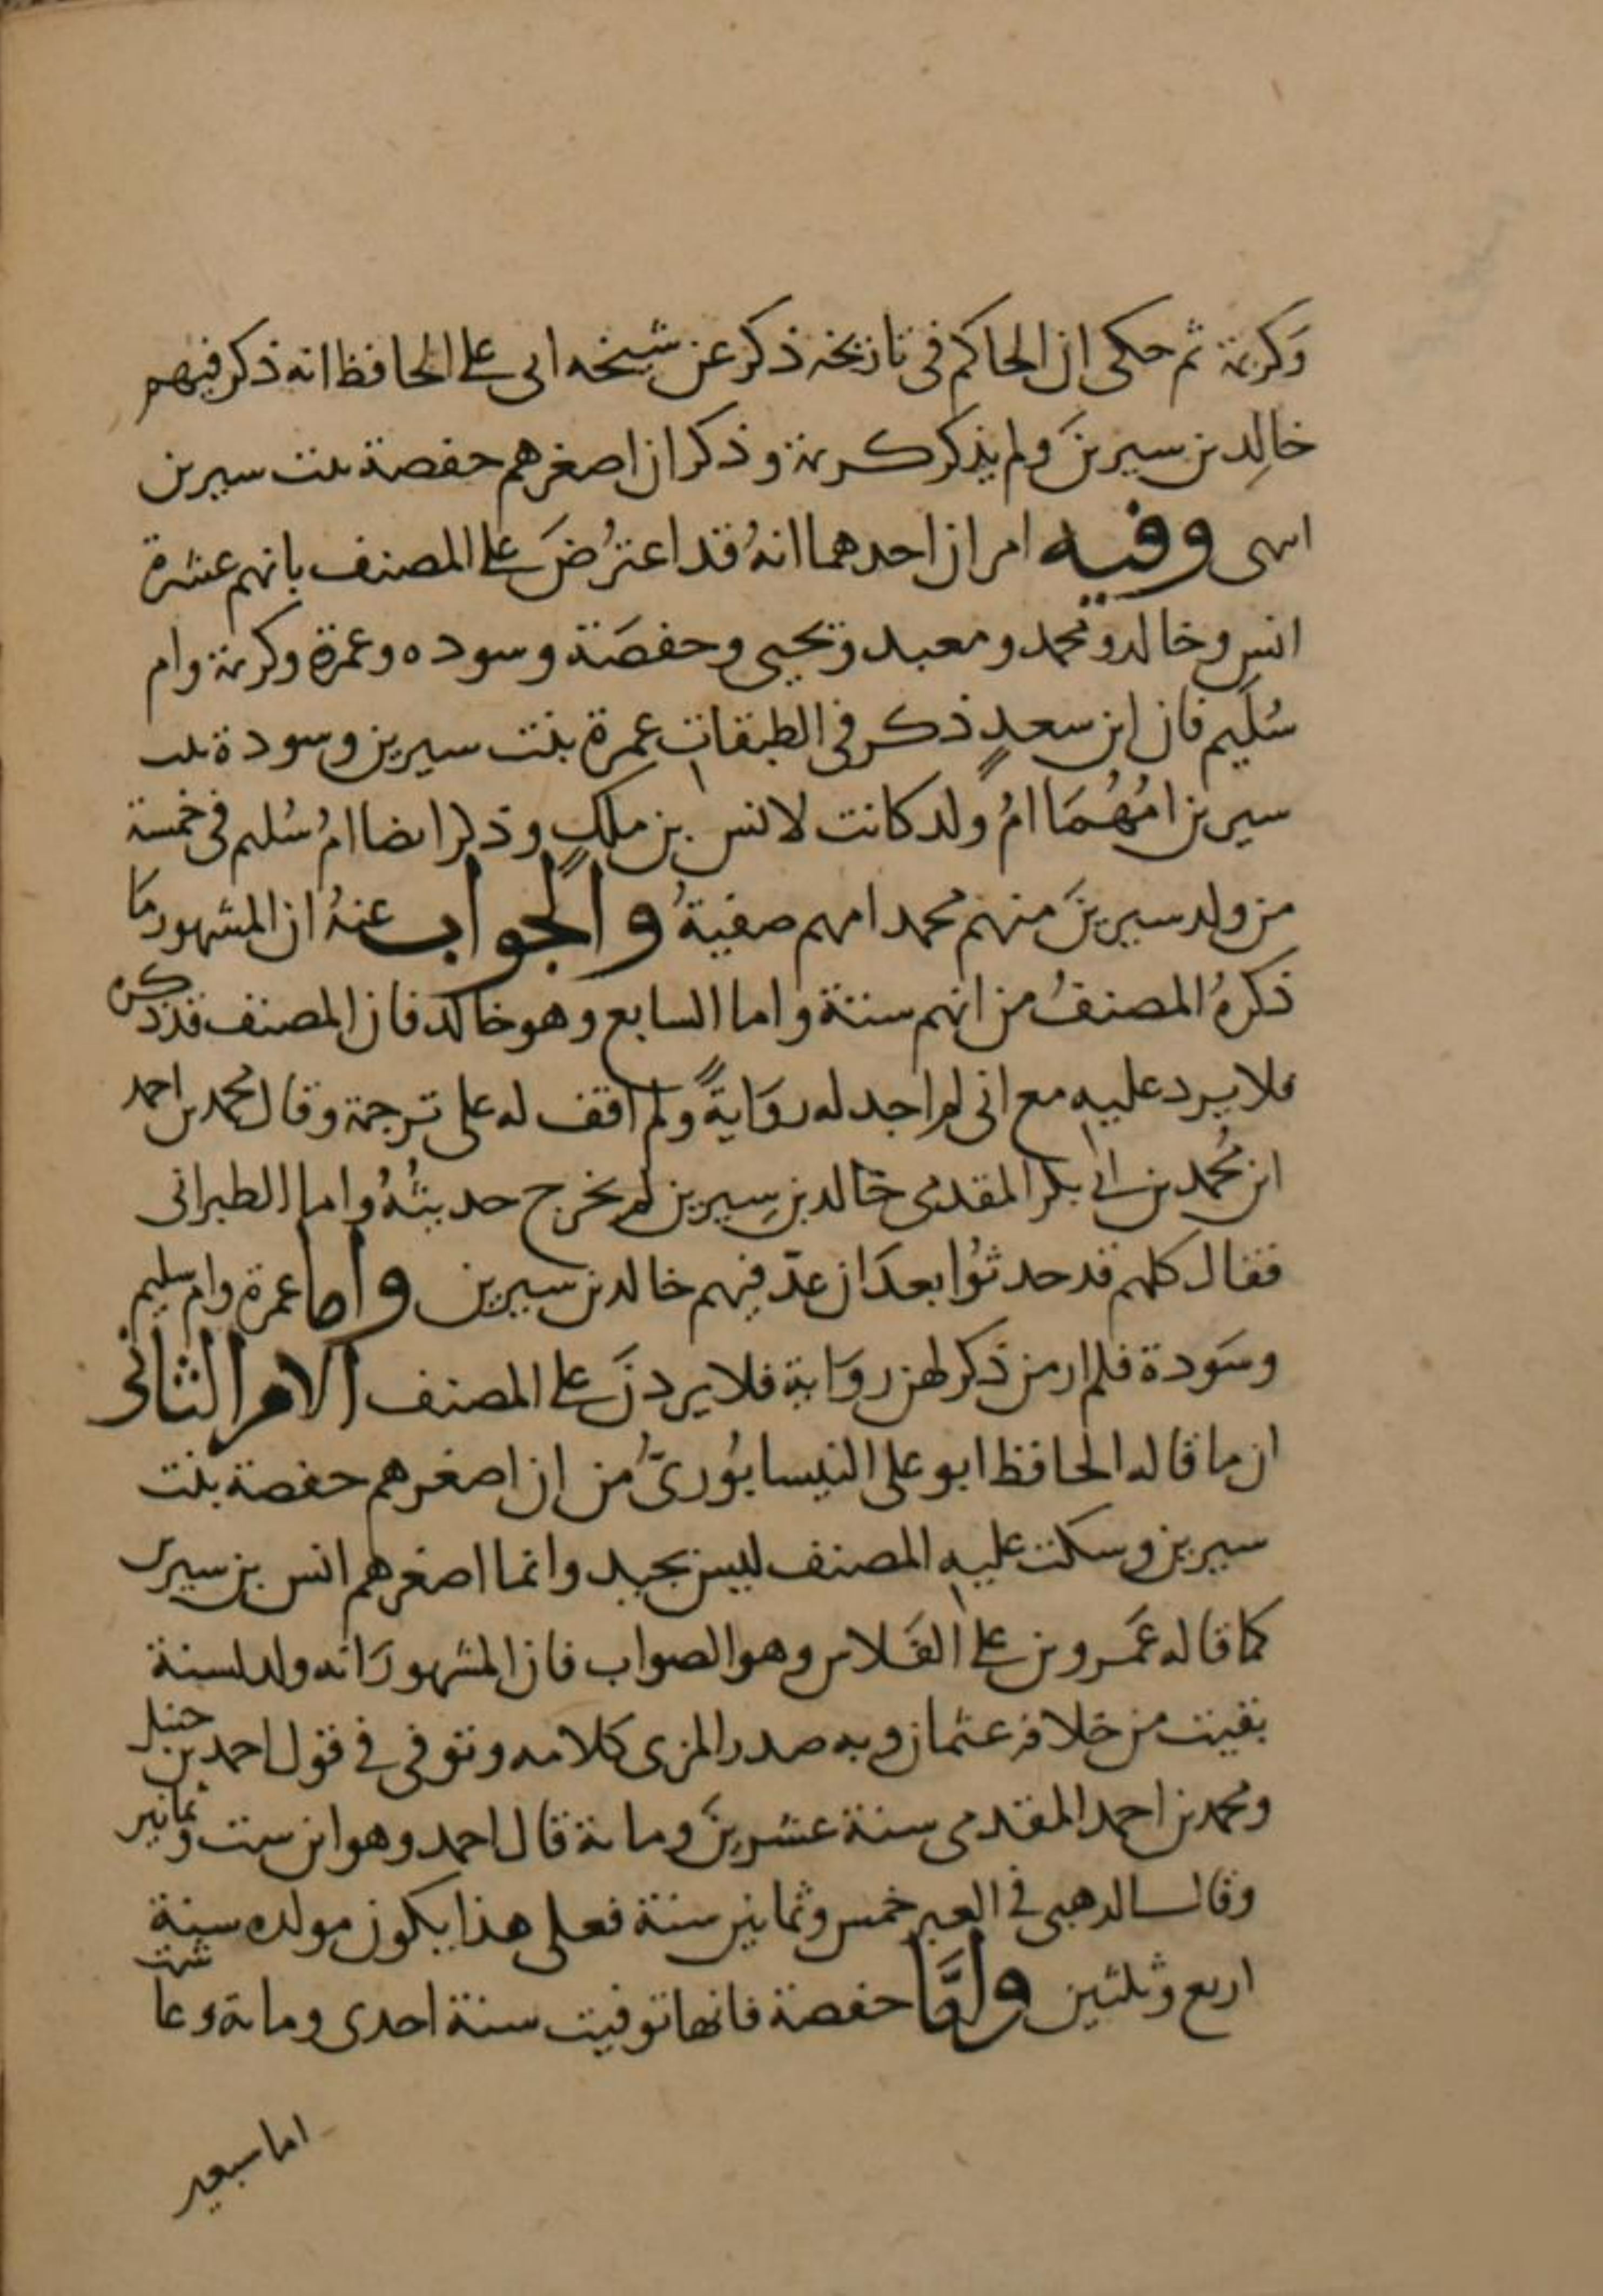 وَكريمة ثم حكى ان الحاكم فى تاريخه ذكر عن شيخه ابى على الحافظ انه ذكر فيهم
خالِد بن سيرينَ ولم يذكر كريمة وذكر ان اصغرهم حفصة بنت سيرين
انتهى وفيه امران احدهما انهُ قد اعتُرضَ على المصنف بانهم عشرة
انس وخالد ومحمد ومعبد ويحيى وحفصَة وسوده وعمرة وكريمة وام
سُلَيم فان ابن سعدٍ ذكر فى الطبقات عمرة بنت سيرين وسودة بنت
سيرين امُهُمَا امُ ولد كانت لانس بن ملكٍ وذكر ايضا امُ سُليم فى خمسة
من ولد سيرينَ منهم محمد امهم صفيةُ والجواب عنهُ ان المشهور مَا
ذكرهُ المصنفُ من انهم ستة واما السابع وهو خالد فان المصنف قد ذكره
فلا يرد عليه مع انى لم اجد له روَايةً ولم اقف له على ترجمة وقال محمد بن احمد
ابن مُحمد بن ابى بكر المقدمى خالد بن سِيرين لم يخرج حديثُهُ واما الطبرانى
فقال كلهم قد حدثوُا بعدَ ان عدّ فيهم خالد بن سيرين واما عمرة وام سليم
وسَودة فلم ار من ذكر لهن روَاية فلا يردنَ على المصنف الامر الثانى
ان ما قاله الحافظ ابو على النيسابوُرىُّ من ان اصغرهم حفصة بنت
سيرين وسكت عليه المصنف ليس بجيد وانما اصغرهم انس بن سيرين
كما قاله عَمرو بن على الفَلاس وهو الصواب فان المشهورَ انه ولد لسنة
بقيت من خلافة عثمان وبه صدر المزى كلامه وتوفى فى قول احمد بن حنبل
ومحمد بن احمد المقدمى سنة عشرينَ ومائة قال احمد وهو ابن ست وثمانين
وقال الذهبى فى العبر خمس وثمانين سنة فعلى هذا يكون مولده سنة
اربع وثلثين وامَّا حفصة فانها توفيت سنة احدى ومائة وعاشت
اما سبعين